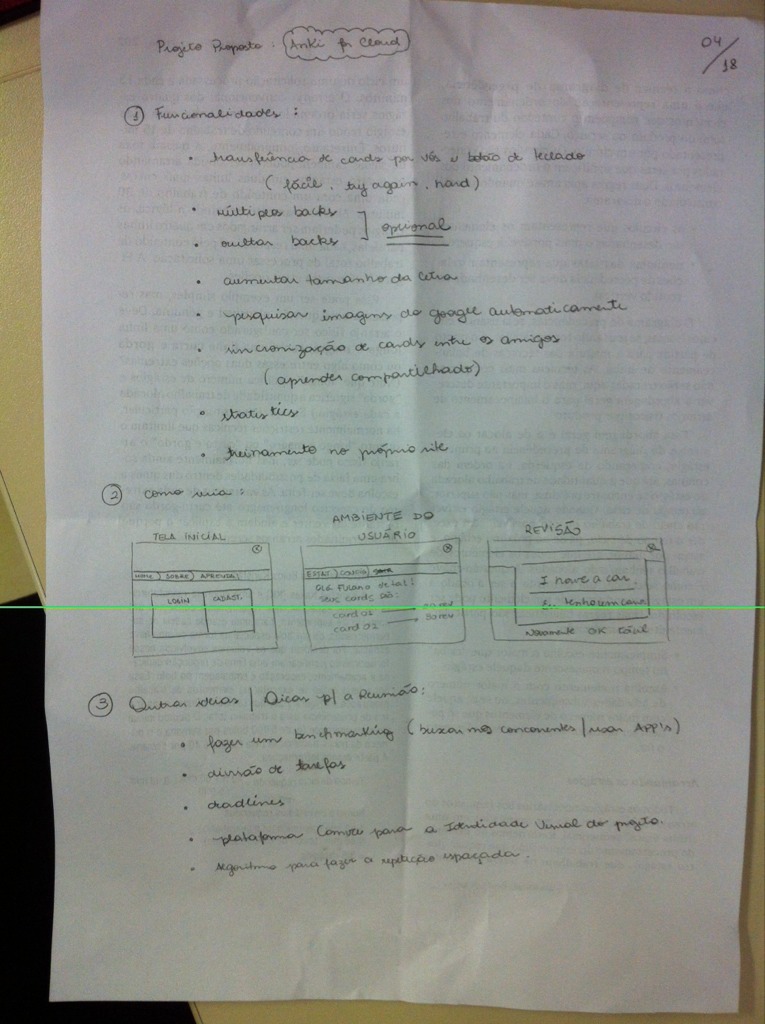 Projeto Proposto: Anki for Cloud
04/18
① Funcionalidades:
• transferência de cards por voz e botão de teclado
(fácil, try again, hard)
• múltiplos backs
• ocultar backs
opcional
• aumentar tamanho da letra
• pesquisar imagens do google automaticamente
• sincronização de cards entre os amigos
(aprender compartilhado)
• statistics
• treinamento no próprio site
② como seria:
TELA INICIAL
HOME) SOBRE) APRENDA)
LOGIN CADAST.
AMBIENTE DO
USUÁRIO
ESTAT.) CONFIG)
Olá Fulano de tal!
Seus cards são:
card 01
card 02
REVISÃO
I have a car.
tenho um carro
Novamente OK fácil
③ Outras ideias / Dicas p/ a Reunião:
• fazer um benchmarking (buscar nos concorrentes / usar APP's)
• divisão de tarefas
• deadlines
• plataforma Canvas para a Identidade Visual do projeto.
• Algoritmo para fazer a repetição espaçada.